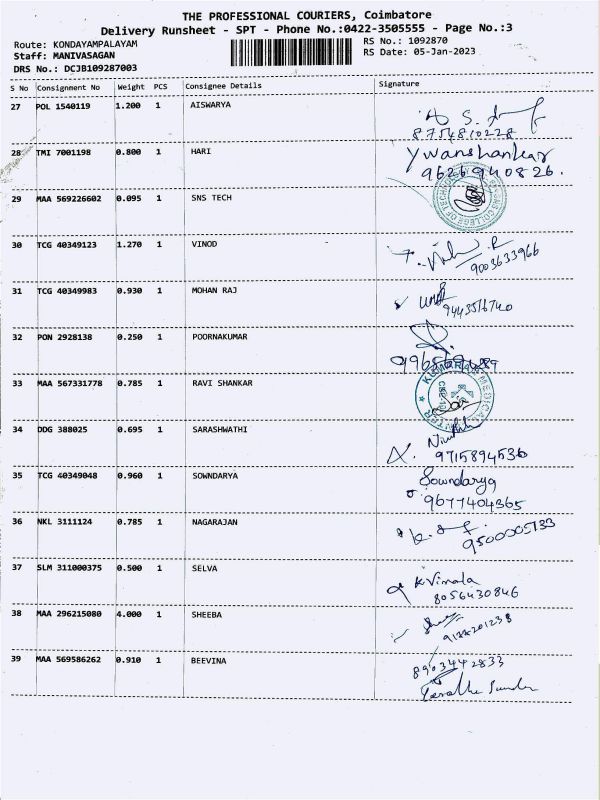 THE PROFESSIONAL COURIERS, Coimbatore
Delivery Runsheet - SPT - Phone No.:0422-3505555 - Page No.:3
Route: KONDAYAMPALAYAM
Staff: MANIVASAGAN
DRS No.: DCJB109287003
RS No.: 1092870
RS Date: 05-Jan-2023
S No Consignment No Weight PCS Consignee Details Signature
27 POL 1540119 1.200 1 AISWARYA
8754810228
28 TMI 7001198 0.800 1 HARI
Ywanshankar
9626940826.
29 MAA 569226602 0.095 1 SNS TECH
30 TCG 40349123 1.270 1 VINOD
9003633966
31 TCG 40349983 0.930 1 MOHAN RAJ
9443516740
32 PON 2928138 0.250 1 POORNAKUMAR
33 MAA 567331778 0.785 1 RAVI SHANKAR
KUMARAN MEDICAL
34 DDG 388025 0.695 1 SARASHWATHI
9715894536
35 TCG 40349048 0.960 1 SOWNDARYA
Sowndarya
9677404365
36 NKL 3111124 0.785 1 NAGARAJAN
37 SLM 311000375 0.500 1 SELVA
K.Vimala
8056430846
38 MAA 296215080 4.000 1 SHEEBA
39 MAA 569586262 0.910 1 BEEVINA
8903442833